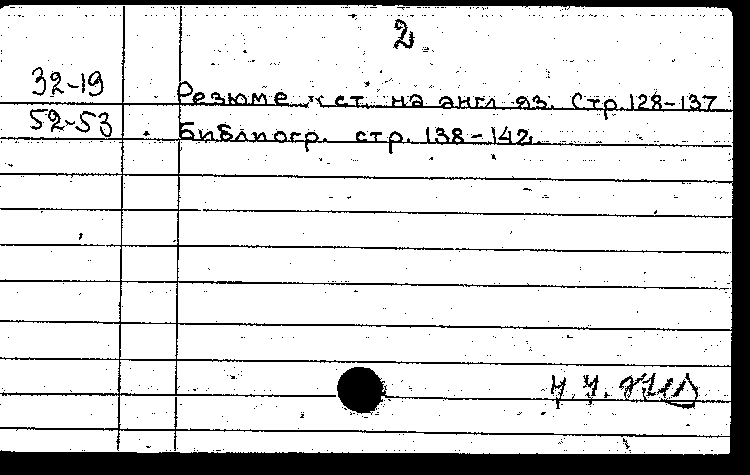 2
32-19 Резюме к ст. на англ. яз. Стр. 128-137
52-53 Библиогр. стр. 138-142.